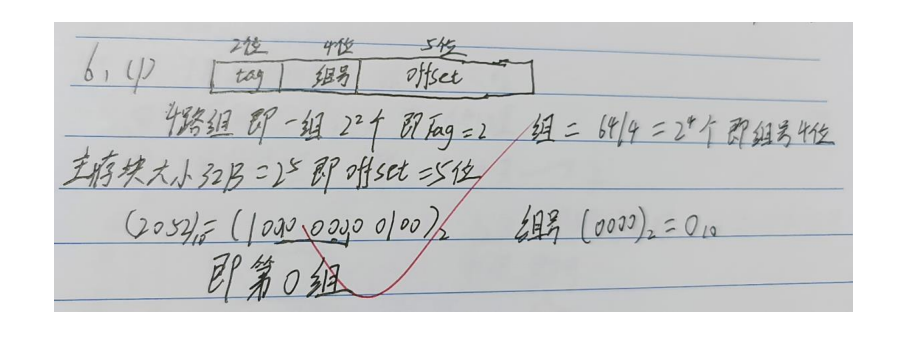 6, (1)
2位 4位 5位
tag 组号 offset
4路组 即一组 2²个 即Tag=2 组 = 64/4 = 2⁴个 即组号4位
主存块大小32B = 2⁵ 即 offset = 5位
(2052)₁₀ = (1000 0000 0100)₂ 组号 (0000)₂ = 0₁₀
即第0组